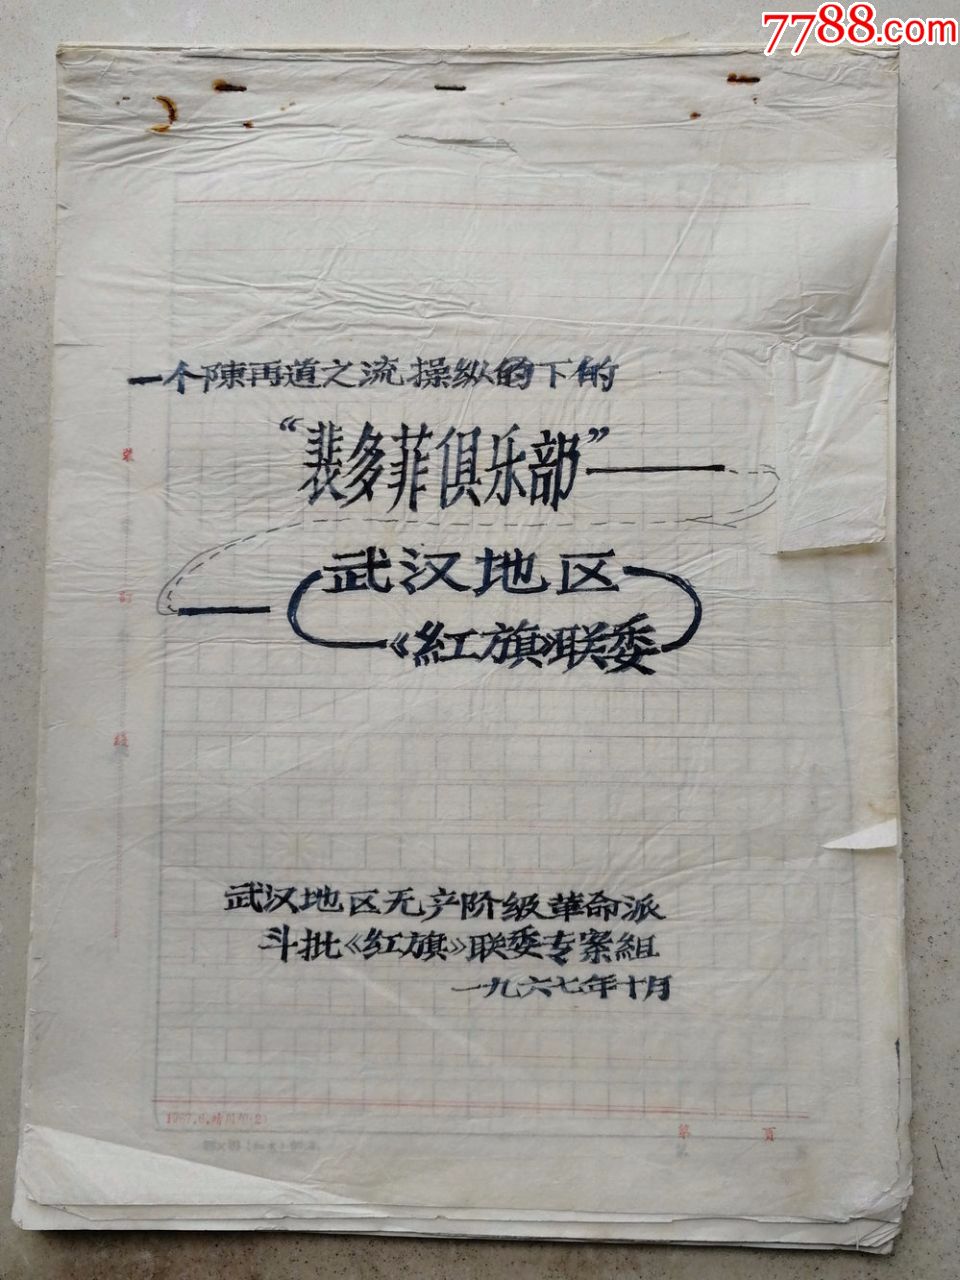 7788.com
一个陳再道之流操纵的下的
“裴多菲俱乐部”——
武汉地区
——《紅旗》联委
武汉地区无产阶级革命派
斗批《红旗》联委专案組
一九六七年十月
装
訂
綫
第 頁